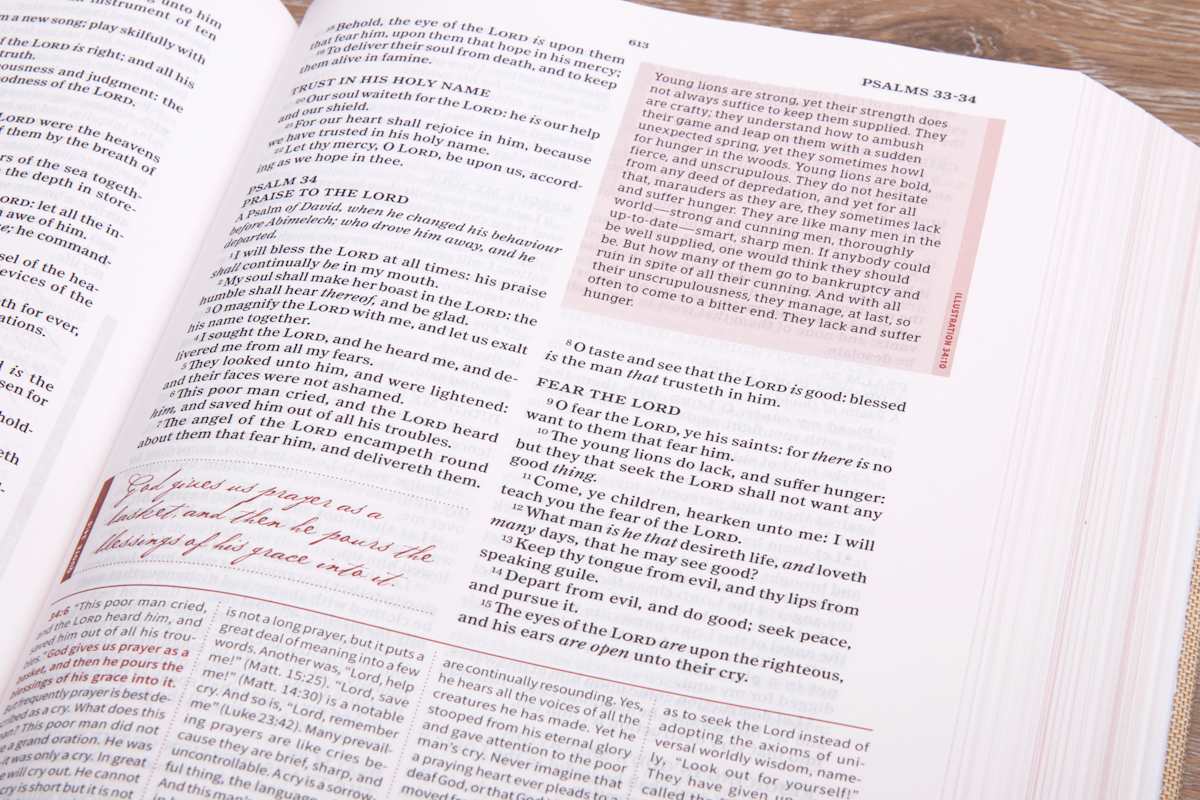 unto him
instrument of ten
a new song; play skilfully with
of the LORD is right; and all his
truth.
ousness and judgment: the
oodness of the LORD.
LORD were the heavens
of them by the breath of
rs of the sea togeth-
the depth in store-
ORD: let all the in-
awe of him.
e; he command-
sel of the hea-
evices of the
th for ever,
ations.
d is the
sen for
hold-
613
PSALMS 33-34
18 Behold, the eye of the LORD is upon them
that fear him, upon them that hope in his mercy;
19 To deliver their soul from death, and to keep
them alive in famine.
TRUST IN HIS HOLY NAME
20 Our soul waiteth for the LORD: he is our help
and our shield.
21 For our heart shall rejoice in him, because
we have trusted in his holy name.
22 Let thy mercy, O LORD, be upon us, accord-
ing as we hope in thee.
PSALM 34
PRAISE TO THE LORD
A Psalm of David, when he changed his behaviour
before Abimelech; who drove him away, and he
departed.
1 I will bless the LORD at all times: his praise
shall continually be in my mouth.
2 My soul shall make her boast in the LORD: the
humble shall hear thereof, and be glad.
3 O magnify the LORD with me, and let us exalt
his name together.
4 I sought the LORD, and he heard me, and de-
livered me from all my fears.
5 They looked unto him, and were lightened:
and their faces were not ashamed.
6 This poor man cried, and the LORD heard
him, and saved him out of all his troubles.
7 The angel of the LORD encampeth round
about them that fear him, and delivereth them.
God gives us prayer as a
basket and then he pours the
blessings of his grace into it.
Young lions are strong, yet their strength does
not always suffice to keep them supplied. They
are crafty; they understand how to ambush
their game and leap on them with a sudden
unexpected spring, yet they sometimes howl
for hunger in the woods. Young lions are bold,
fierce, and unscrupulous. They do not hesitate
from any deed of depredation, and yet for all
that, marauders as they are, they sometimes lack
and suffer hunger. They are like many men in the
world—strong and cunning men, thoroughly
up-to-date—smart, sharp men. If anybody could
be well supplied, one would think they should
be. But how many of them go to bankruptcy and
ruin in spite of all their cunning. And with all
their unscrupulousness, they manage, at last, so
often to come to a bitter end. They lack and suffer
hunger.
ILLUSTRATION 34:10
8 O taste and see that the LORD is good: blessed
is the man that trusteth in him.
FEAR THE LORD
9 O fear the LORD, ye his saints: for there is no
want to them that fear him.
10 The young lions do lack, and suffer hunger:
but they that seek the LORD shall not want any
good thing.
11 Come, ye children, hearken unto me: I will
teach you the fear of the LORD.
12 What man is he that desireth life, and loveth
many days, that he may see good?
13 Keep thy tongue from evil, and thy lips from
speaking guile.
14 Depart from evil, and do good; seek peace,
and pursue it.
15 The eyes of the LORD are upon the righteous,
and his ears are open unto their cry.
34:6 "This poor man cried,
and the LORD heard him, and
saved him out of all his trou-
bles." God gives us prayer as a
basket, and then he pours the
blessings of his grace into it.
But frequently prayer is best de-
scribed as a cry. What does this
? This poor man did not
a grand oration. He was
it was only a cry. In great
will cry out. He cannot
cry is short but it is not
is not a long prayer, but it puts a
great deal of meaning into a few
words. Another was, "Lord, help
me!" (Matt. 15:25). "Lord, save
me!" (Matt. 14:30) is a notable
cry. And so is, "Lord, remember
me" (Luke 23:42). Many prevail-
ing prayers are like cries be-
cause they are brief, sharp, and
uncontrollable. A cry is a sorrow-
ful thing, the language
And this man's
are continually resounding. Yes,
he hears all the voices of all the
creatures he has made. Yet he
stooped from his eternal glory
and gave attention to the poor
man's cry. Never imagine that
a praying heart ever pleads to a
deaf God, or that God
moved
as to seek the Lord instead of
adopting the axioms of uni-
versal worldly wisdom, name-
ly, "Look out for yourself!"
They have given up
called the